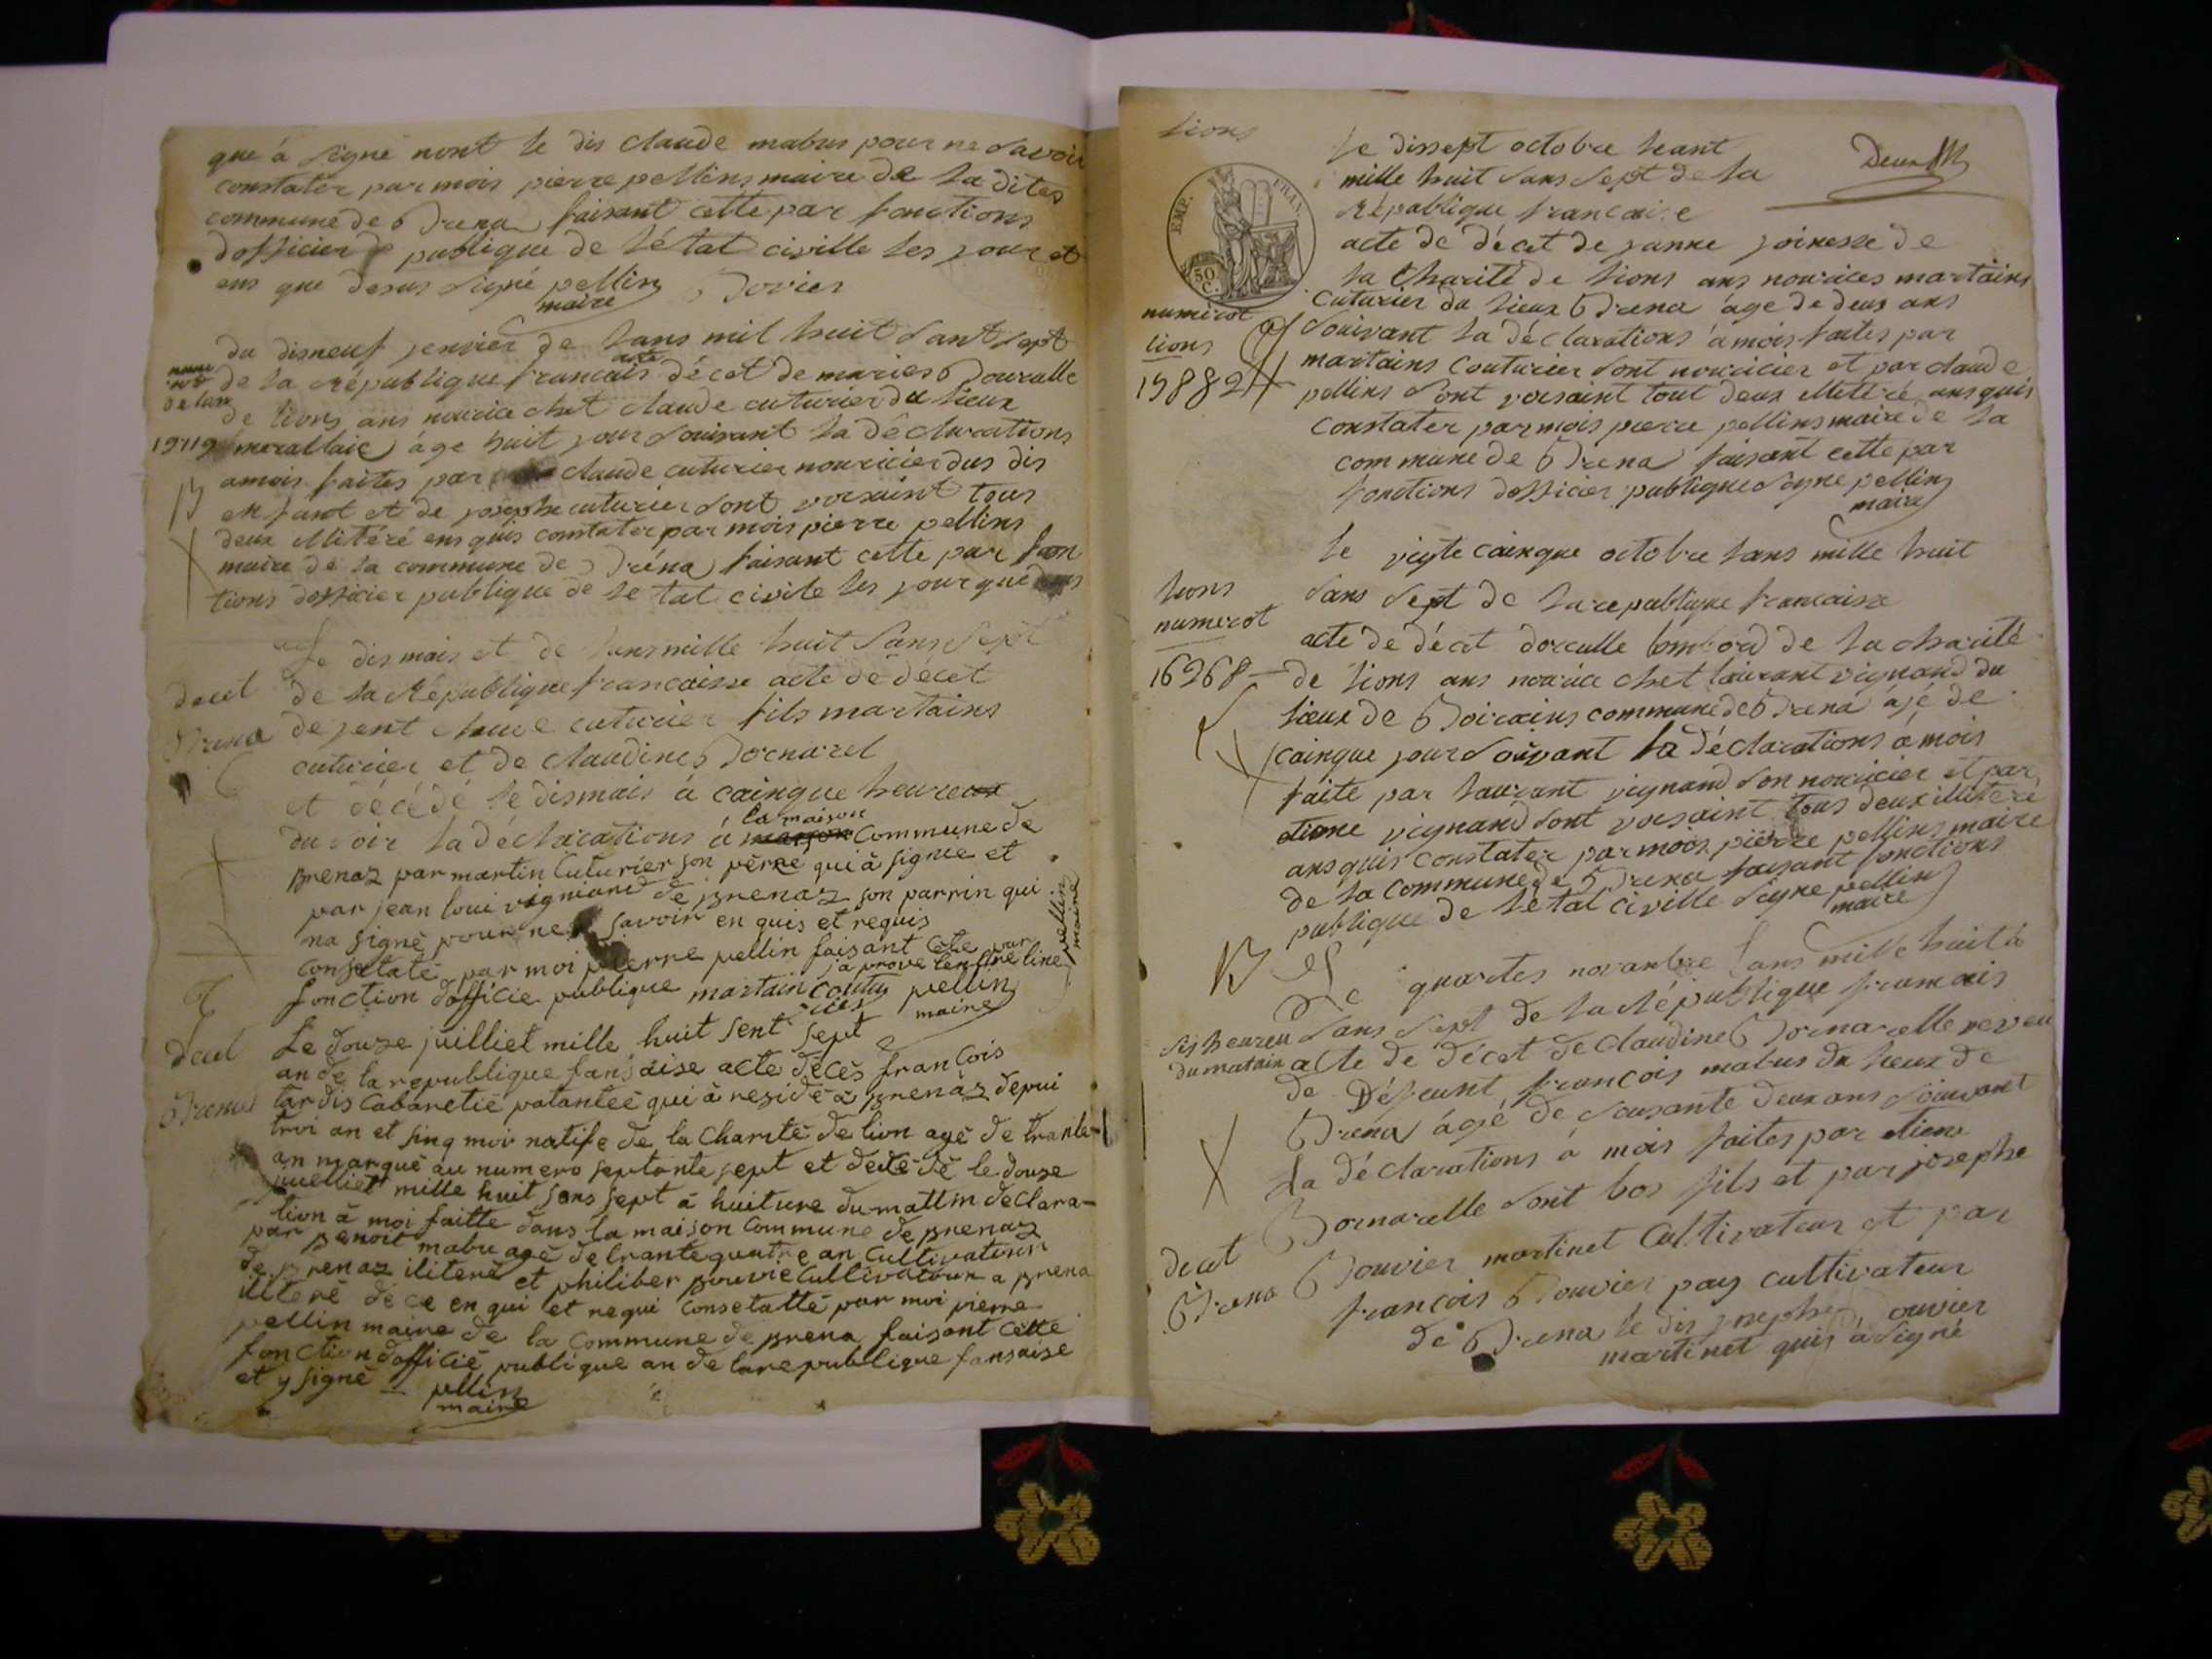 que á signé nont le dis claude mabus pour ne savoir
constater par mois pierre pellins maire de la dites
commune de Brena faisant cette par fonctions
dofficier de publique de létat civille les jour et
ens que desus signé pellin Bovier
maire
du disneuf jenvier de lans mil huit sant sept
acte
de la république francais décet de maries Bouralle
de lions ans nourice chet claude cuturier du lieux
19719 merallaic áge huit jour souivant la déclarations
amois faites par claude cuturier nouricier dus dis
enfant et de josephe cuturier sont voisaint tous
deux illitéré ensquis constater par mois pierre pellins
maire de la commune de Bréna faisant cette par fon
tions dofficier publique de letat civile les jour que desus
Le dis mais et de lans mille huit sans sept
decet de la République francaisse acte de décet
Brena de cuturier fils martains
cuturier et de claudines Bornarel
et décédé le dismais á cainque heure
du soir la déclarations á la maison Commune de
prenaz par martin Cuturier son pérre qui á signée et
par jean loui vigniand de prenaz son parrin qui
na signé pour ne savoir en quis et requis
constaté par moi pierre pellin faisant cete par
japrove lentre line
fonction dofficie publique martain coutu rier pellin
maire
pellin
maire
decet Le douze juilliet mille huit sent sept
an de la republique fansaise acte déces francois
Brena tardis Cabaretié patantée qui á residé a prenáz depui
troi an et sinq moi natife de la Charité de lion agé de trante-
an marqué au numero septante sept et decédé le douze
juelliet mille huit sans sept á huiture du mattin déclara-
tion á moi faitte dans la maison Commune de prenaz
par penoit mabu agé de trante quatre an Cultivateur
de prenaz iliteré et philiber pouvié Cullivateur a prena
illeré de ce en qui et requi Consetatté par moi pierre
pellin maire de la Commune de prena faisant cette
fonction dofficié publique an de lare publique fansaise
et y signé pellin
maire
lions
le dissept octobre leant Deux
mille huit sans sept de la
République francaise
EMP. FRAN.
50 C.
acte de décet de janne joinesse de
la Charité de lions ans nourices martains
Cuturier du lieux Brena áge de deux ans
numerot
lions
19882
souivant la déclarations á mois faites par
martains Couturier sont nouricier et par claude
pellins sont voisaint tout deux illitéré ansquis
constater par mois pierre pellins maire de la
commune de Brena faisant cette par
fonctions dofficier publique signe pellin
maire
le vigte cainque octobre lans mille huit
sans sept de la republique francaisse
lions
numerot
16268
acte de décet dorculle lombord de la charité
de lions ans nourice chet laurant vignand du
lieux de Boirains commune de Brena ájé de
cainque jour soivant la déclarations á mois
faite par laurant vignand son nouricier et par
etiene vignand sont voisaint tous deux illitéré
ansquis constater par mois pierre pellins maire
de la commune de Brena faisant fonctions
publique de letat civille signe pellin
maire
Le quartes novanbre lans mille huit á
sans sept de la République francais
sij heureu
du matain
acte de décet de claudine Bornarelle veveu
de Défeunt francois mabus du lieux de
Brena ágé de sousante deux ans souivant
la déclarations á mois faites par etiene
Bornarelle sont bos fils et par josephe
decet
Brena
Bouvier martinet Cultivateur et par
francois Bouvier pay cultivateur
de Brena lé dis josephe Bouvier
martinet quis á signé